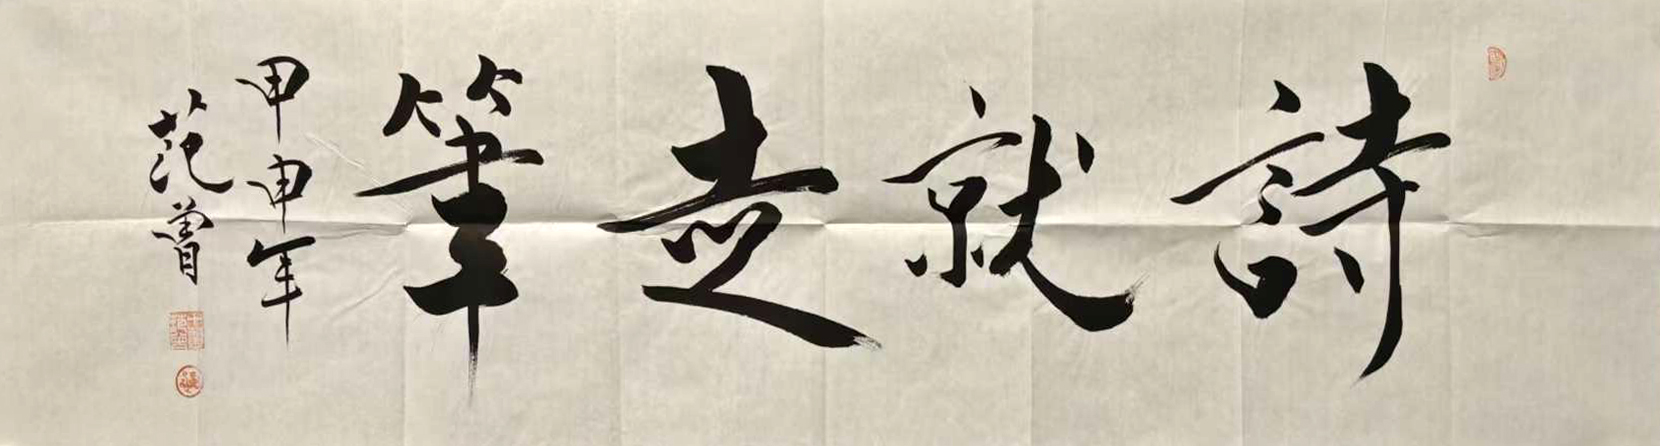 詩就走筆
甲申年
范曾